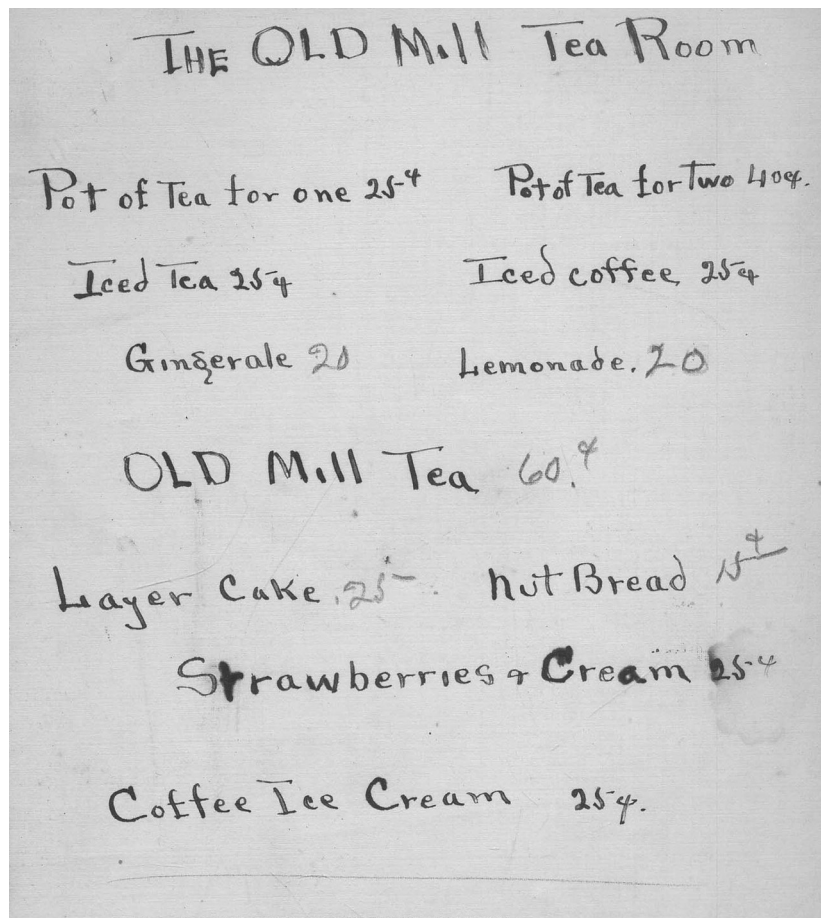 THE OLD Mill Tea Room
Pot of Tea for one 25¢ Pot of Tea for Two 40¢.
Iced Tea 25¢ Iced coffee 25¢
Gingerale 20 Lemonade. 20
OLD Mill Tea 60.¢
Layer Cake. 25 Nut Bread 15¢
Strawberries & Cream 25¢
Coffee Ice Cream 25¢.